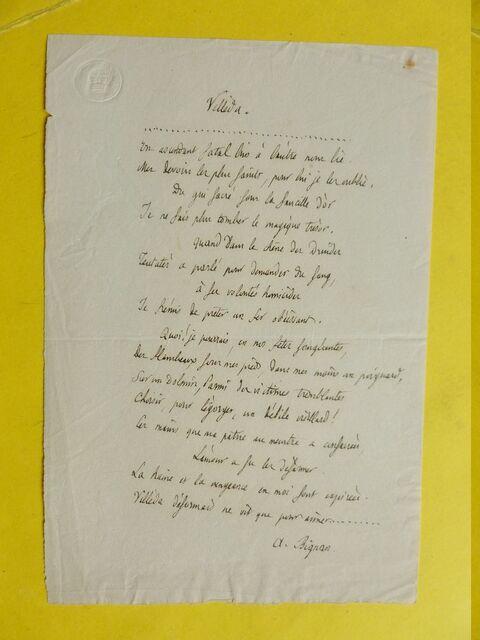 Velléda.
Un ascendant fatal Uns à l'autre nous lie.
Mes devoirs les plus saints, pour lui je les oublie.
Du gui sacré sous la faucille d'or
Je ne fais plus tomber le magique trésor.
Quand dans le chêne des Druides
Teutatès a parlé pour demander du sang,
à ses volontés homicides
Je frémis de prêter un fer obéissant.
Quoi! je pourrais, en nos fêtes sanglantes,
Des flambeaux sous mes pieds dans mes mains un poignard,
Sur un dolmin, parmi des victimes tremblantes
Choisir, pour l'égorger, un débile vieillard!
Ces mains que ma patrie au meurtre a consacrées
L'amour a su les désarmer.
La haine et la vengeance en moi sont expirées.
Velléda désormais ne vit que pour aimer..........
A. Bignan.